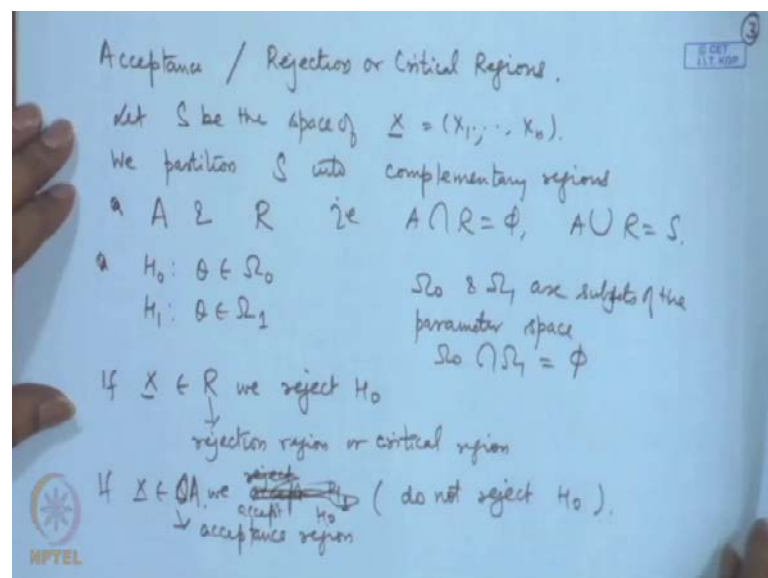 3
© CET
I.I.T. KGP
Acceptance / Rejection or Critical Regions.
Let S be the space of X = (X₁, ..., Xₙ).
We partition S into complementary regions
A & R ie A ∩ R = ϕ, A ∪ R = S.
H₀ : θ ∈ Ω₀
H₁ : θ ∈ Ω₁
Ω₀ & Ω₁ are subsets of the
parameter space
Ω₀ ∩ Ω₁ = ϕ
If X ∈ R we reject H₀
↓
rejection region or critical region
If X ∈ A, we accept H₀ (do not reject H₀).
↓ acceptance region
NPTEL